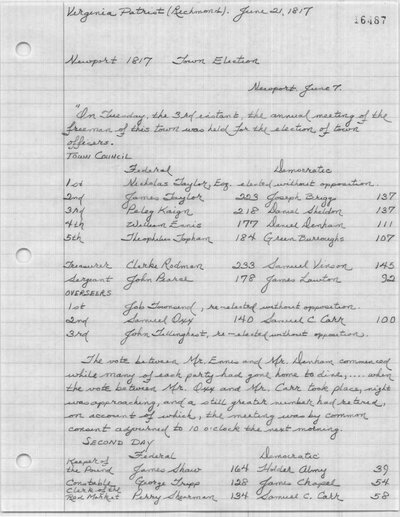 Virginia Patriot (Richmond). June 21, 1817
16487
Newport 1817 Town Election
Newport June 7.
"On Tuesday, the 3rd instant, the annual meeting of the
freeman of this town was held for the election of town
officers.
TOWN COUNCIL
Federal Democratic
1st Nicholas Taylor, Esq. elected without opposition.
2nd James Taylor 223 Joseph Briggs 137
3rd Peleg 218 Daniel Sheldon 137
4th William Ennis 177 Daniel Denham 111
5th Theophilus Topham 184 Green Burroughs 107
Treasurer Clarke Rodman 233 Samuel Vinson 145
Sergant John Pearce 178 James Lawton 92
OVERSEERS
1st Job Townsend, re-elected without opposition.
2nd Samuel Oxx 140 Samuel C. Carr 100
3rd John Tillinghast, re-elected without opposition.
The vote between Mr. Ennis and Mr. Denham commenced
while many of each party had gone home to dine, .... when
the vote between Mr. Oxx and Mr. Carr took place, night
was approaching, and a still greater number had retired,
on account of which, the meeting was by common
consent adjourned to 10 o'clock the next morning.
SECOND DAY
Federal Democratic
Keeper of
the Pound James Shaw 164 Holder Almy 39
Constable George Tripp 128 James Chapel 54
Clerk of the
Market Perry Shearman 134 Samuel C. Carr 58